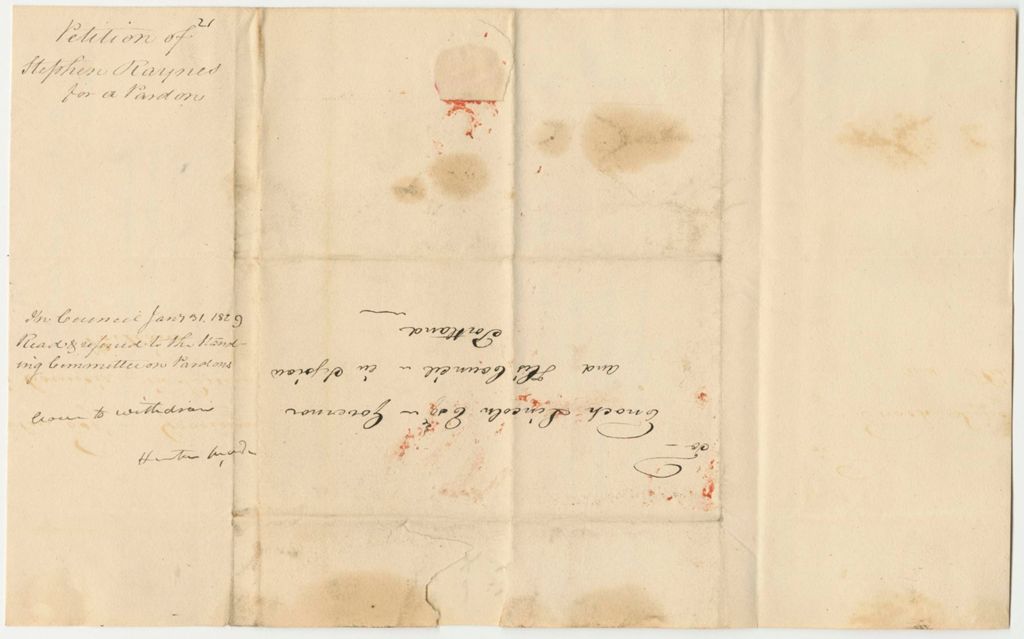 Petition of
Stephen Raynes
for a Pardon
In Council Jany 31. 1826
Read & referred to the Stand-
ing Committee on Pardons
Leave to withdraw
To
Enoch Lincoln Esqr - Governor
and His Council - in Session
Portland